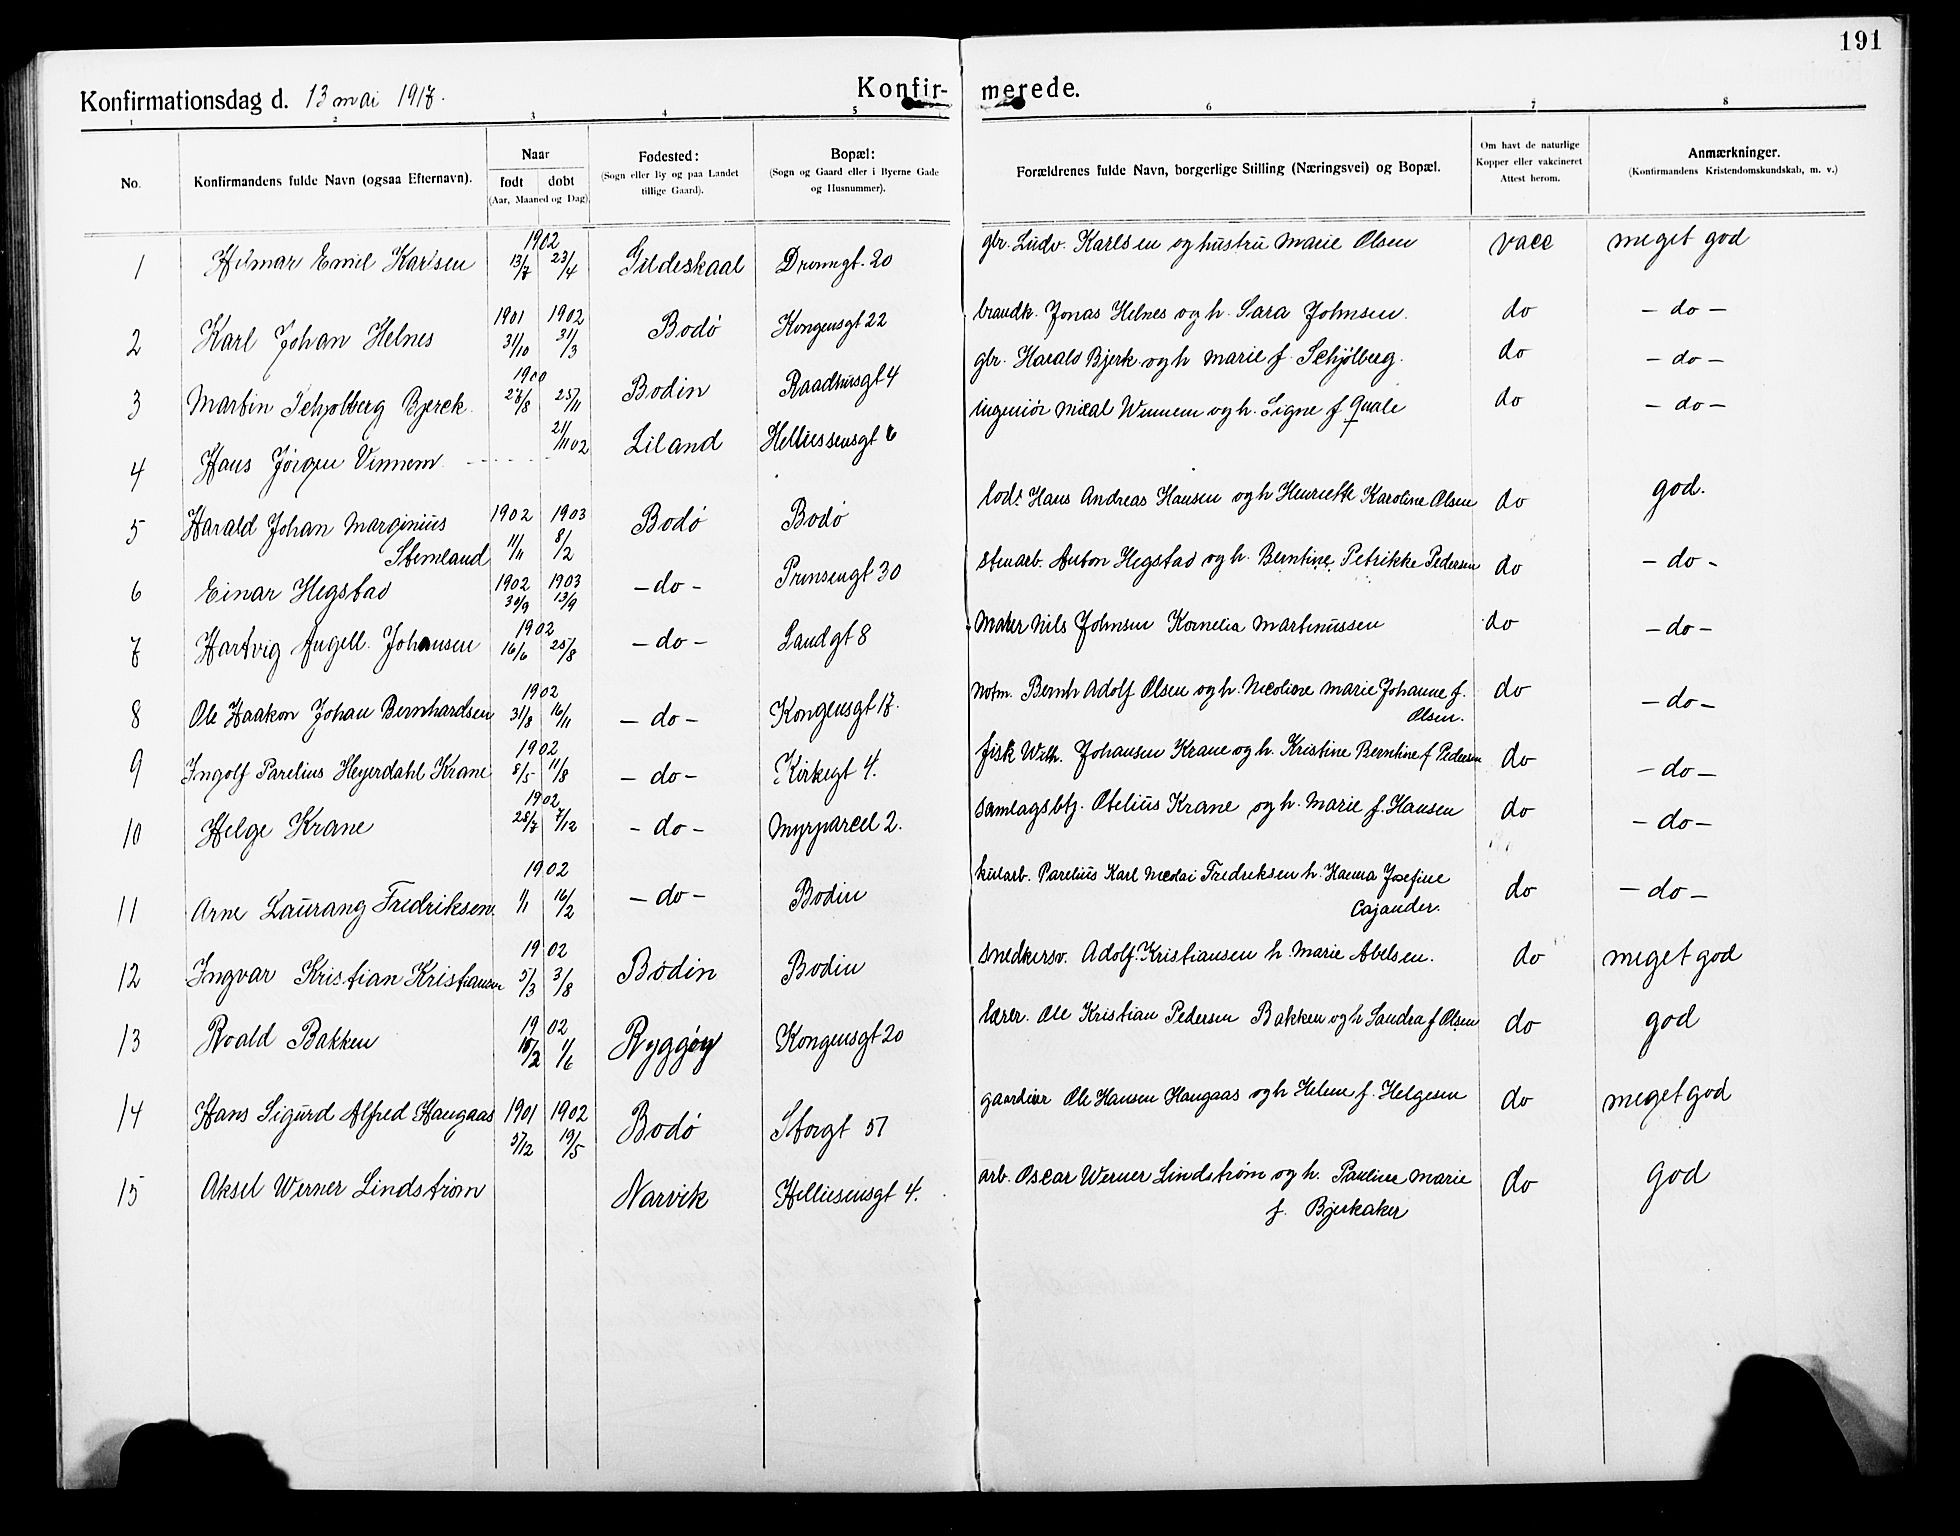 191
Konfirmationsdag d. 13 mai 1917. Konfir- merede.
1 2 3 4 5 6 7 8
No. Konfirmandens fulde Navn (ogsaa Efternavn). Naar født døbt (Aar, Maaned og Dag). Fødested: (Sogn eller By og paa Landet tillige Gaard). Bopæl: (Sogn og Gaard eller i Byerne Gade og Husnummer). Forældrenes fulde Navn, borgerlige Stilling (Næringsvei) og Bopæl. Om havt de naturlige Kopper eller vakcineret Attest herom. Anmærkninger. (Konfirmandens Kristendomskundskab, m. v.)
1 Hilmar Emil Karlsen 1902 13/7 23/4 Gildeskaal Dronngt. 20 gbr. Ludv. Karlsen og hustru Marie Olsen vacc meget god
2 Karl Johan Helnes 1901 31/10 1902 31/3 Bodø Kongensgt 22 brandk. Jonas Helnes og h. Sara Johnsen. do - do -
3 Martin Schjølberg Bjerck 1900 28/8 25/11 Bodin Raadhusgt 4 gbr. Harald Bjerk og h Marie f. Schjølberg. do - do -
4 Hans Jørgen Vinnem - - - - 21/11 02 Liland Helliesensgt 6 ingeniør Mical Winnem og h. Signe f Quale do - do -
5 Harald Johan Marginius Stemland 1902 11/11 1903 8/2 Bodø Bodø lods Hans Andreas Hansen og h Henriette Karoline Olsen do god.
6 Einar Hegstad 1902 30/9 1903 13/9 - do - Prinsengt 30 stenarb. Anton Hegstad og h. Berntine Petrikke Pedersen do - do -
7 Hartvig Angell Johansen 1902 16/6 25/8 - do - Sandgt 8 Maler Nils Johnsen Kornelia Martinussen do - do -
8 Ole Haakon Johan Bernhardsen 1902 31/8 16/11 - do - Kongensgt 17. notm. Bernh Adolf Olsen og h. Nicoline Marie Johanne f. Olsen. do - do -
9 Ingolf Parelius Heyerdahl Krane 1902 8/5 11/8 - do - Kirkegt 4. fisk Wilh. Johansen Krane og h. Kristine Berntine f Pedersen do - do -
10 Helge Krane 1902 28/7 7/12 - do - Myrparcel 2. Samlagsbtj. Otelius Krane og h. Marie f. Hansen do - do -
11 Arne Laurang Fredriksen 1902 1/1 16/2 - do - Bodin kularb. Parelius Karl Nicolai Fredriksen h. Hanna Josefine Cajander. do - do -
12 Ingvar Kristian Kristiansen 1902 5/3 3/8 Bodin Bodin Snedkersv. Adolf Kristiansen h. Marie Abelsen. do meget god
13 Roald Bakken 1902 1/6 Ryggøy Kongensgt 20 lærer. Ole Kristian Pedersen Bakken og h Sandra f Olsen do god
14 Hans Sigurd Alfred Haugaas 1901 5/12 1902 19/5 Bodø Storgt 51 gaardeier Ole Hansen Haugaas og h Helene f. Helgesen do meget god
15 Aksel Werner Lindstrøm Narvik Helliesensgt 4. arb. Oscar Werner Lindstrøm og h. Pauline Marie f. Bjerkaker do god